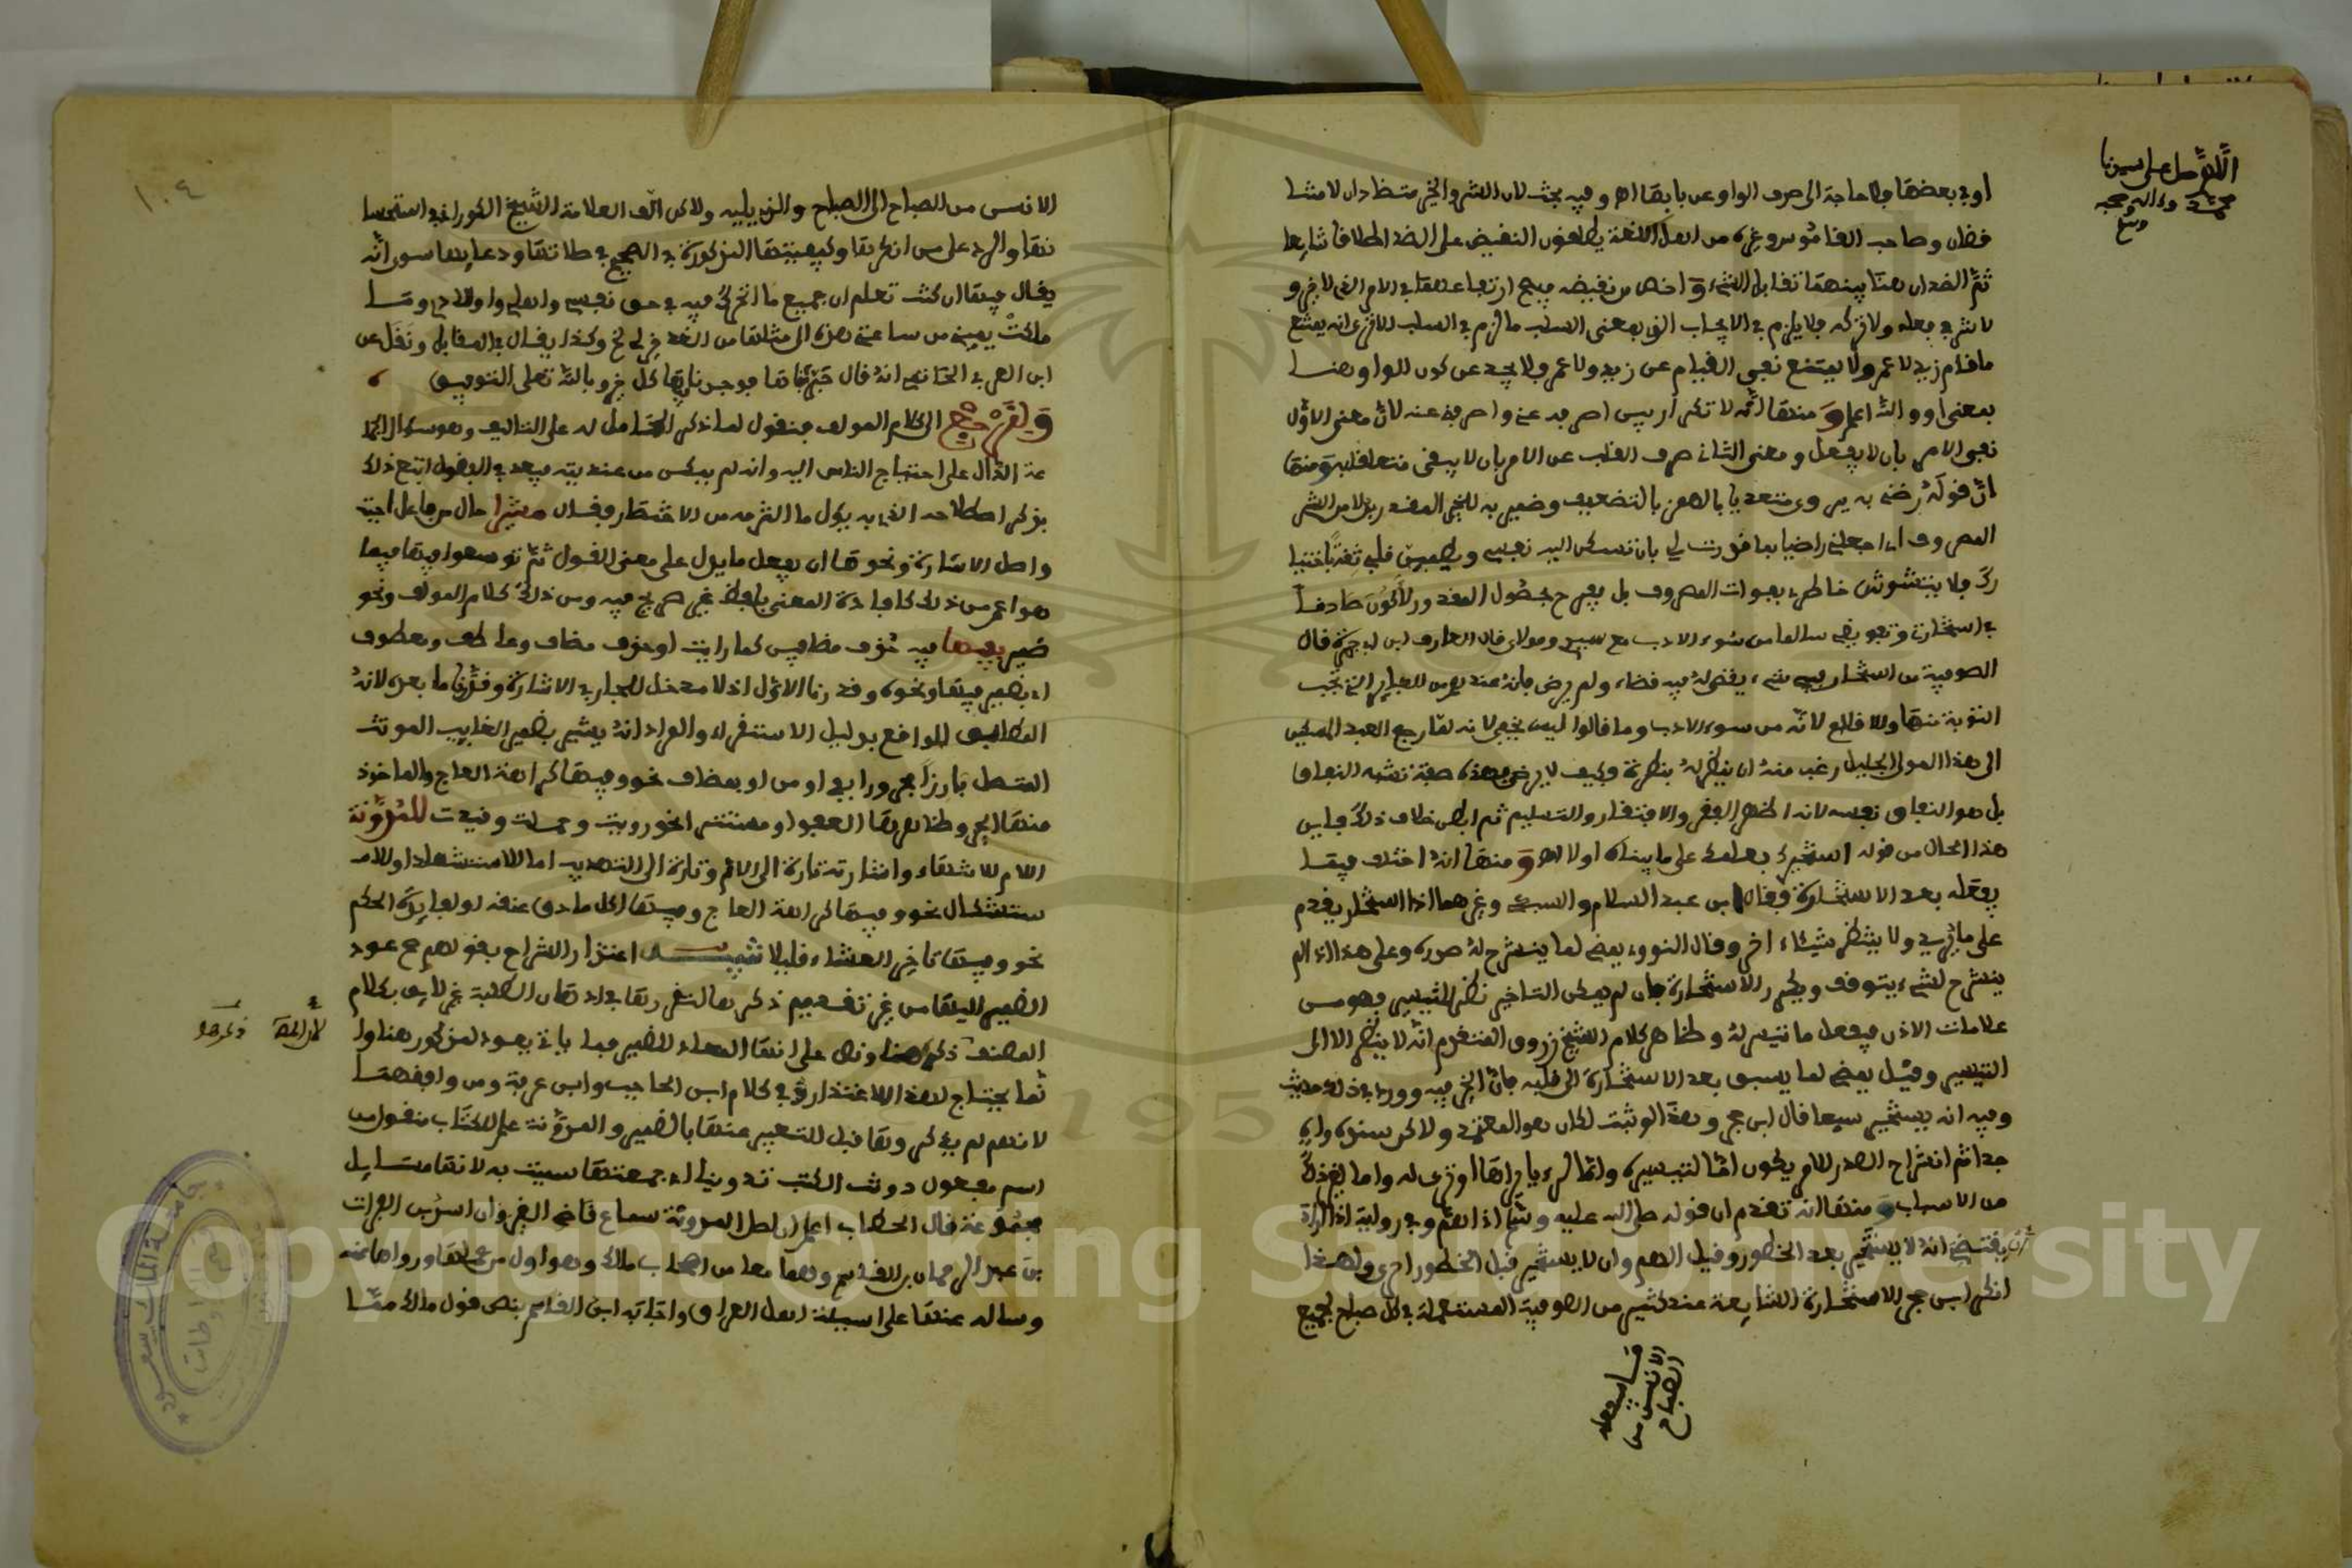 اللهم صل على سيدنا
محمد وءاله وصحبه
وسلم
او في بعضها فلا حاجة الى صرف الواو عن بابها اهـ وفيه بحث لان الشر والخير متضادان لا متنا
قضان وصاحب القاموس وغيره من اهل اللغة يطلقون النقيض على الضد اطلاقا شايعا
ثم الضدان هنا بينهما تقابل الشيء واخص من نقيضه فيصح ارتفاعهما في الامر الذي لا خير و
لا شر في فعله ولا تركه فلا يلزم في الايجاب الذي بمعنى السلب ما لزم في السلب للاترى انه يمتنع
ما قام زيد لا عمرو ولا يمتنع نفي القيام عن زيد ولا عمرو فلا يجد عن كون الواو هنا
بمعنى او والله اعلم ومنها انه لا تكرار بين اصرفه عني واصرفني عنه لان معنى الاول
نفي الامر بان لا يفعل ومعنى الثاني صرف القلب عن الامر بان لا يبقى متعلقا به ومنها
ان قوله رضني به يروى متعديا بالهمز بالتضعيف وضمير به للخير المقدر بدلا من الشر
المصروف اي اجعلني راضيا بما قدرت لي بان تسكن اليه نفسي ويطمئن قلبي ثقة باختيا
رك فلا يتشوش خاطري بفوات المصروف بل يفرح بحصول المقدور ولاكون صادقا
في استخارتي وتفويضي سالما من سوء الادب مع سيدي ومولاي قال العارف ابن ابي جمرة قال
الصوفية من استخار في شيء يقضى له فيه قضاء ولم يرض فانه عندهم من الكباير التي تجب
التوبة منها والاقلاع لانه من سوء الادب وما قالوا ليس يخفى لانه لما رجع العبد المسكين
الى هذا المولى الجليل رغب منه ان ينظر له بنظره وكيف لا يرضى فهذه صفة تشبه النفاق
بل هو النفاق نفسه لانه اظهر الفقر والافتقار والتسليم ثم ابطن خلاف ذلك فاين
هذا الحال من قوله استخيرك بعلمك على ما بيناه اولا اهـ ومنها انه اختلف فيما
يفعله بعد الاستخارة فقال ابن عبد السلام والسبكي وغيرهما اذا استخار يقدم
على ما يريد ولا ينتظر شيئا اخر وقال النووي يمضي لما ينشرح له صدره وعلى هذا اذا لم
ينشرح لشيء يتوقف ويكرر الاستخارة فان لم يمكن التاخير نظر للتيسير فهو من
علامات الاذن فيفعل ما تيسر له وظاهر كلام الشيخ زروق المتقدم انه لا ينظر الا الى
التيسير وقيل يمضي لما يسبق بعد الاستخارة الى قلبه فان الخير فيه وورد في ذلك حديث
وفيه انه يستخير سبعا قال ابن حجر وهذا لو ثبت لكان هو المعتمد ولاكن سنده واه
جدا ثم انشراح الصدر للامر يكون
من الاسباب ومنها انه تقدم ان قوله صلى الله عليه وسلم اذا هم وفي رواية اذا اراد
يقتضي انه لا يستخير بعد الخطور وقبل الهم وان لا يستخير قبل الخطور احرى ولهذا
انكر ابن حجر الاستخارة الشايعة عند كثير من الصوفية المستعملة في كل صباح لجميع
الانفس من
الصباح
١٠٤
الانفس من الصباح الى الصباح والذي يليه ولاكن الف العلامة الشيخ الكوراني في استحسا
نها والرد على من انكرها وكيفيتها المذكورة في الجميع في صلاتها ودعايها سوى انه
يقال فيها ان كنت تعلم ان جميع ما اتحرك فيه في حق نفسي واهلي واولادي وما
ملكت يميني من ساعتي هذه الى مثلها من الغد خير لي الخ وكذا يقال في المقابل ونقل عن
ابن العربي الحاتمي انه قال جربناها فوجدناها كل خير وبالله تعالى التوفيق
ولنرجع الى كلام المؤلف فنقول لما ذكر الحامل له على التاليف وهو سؤال الجما
عة الدال على احتياج الناس اليه وانه لم يمكن من عنديته فيعد في الفضول اتبع ذلك
بذكر اصطلاحه الذي به يكون ما التزمه من الاختصار وقال مشيرا حال من فاعل اجبت
واصل الاشارة ونحوها ان يفعل ما يدل على معنى القول ثم توسعوا فيها فيما
هو اعم من ذلك كافادة المعنى بلفظ غير صريح فيه ومن ذلك كلام المؤلف ونحو
ضمير بفيها فيه حذف مضافين كما رايت او حذف مضاف وعاطف ومعطوف
اي بضمير فيها ونحوه وقدرنا الاول اذ لا مدخل للجار في الاشارة وقدرنا ما بعده لانه
المطابق للواقع بدليل الاستقراء والمراد انه يشير بضمير الغايب المونث
المتصل بارزا مجرورا بفي او من او بمضاف نحو وفيها كراهة العاج والماخوذ
منها وظاهرها العفو او مستتر نحو رويت وحملت وقيدت للمدونة
اللام للانتهاء واشارته تارة الى الام وتارة الى التهذيب اما للاستشهاد او للا
ستشكال نحو وفيها كراهة العاج وفيها اكل ما دق عنقه او لغرابة الحكم
نحو وفيها تاخير العشاء قليلا تنبيه اعتذار الشراح بقولهم صح عود
الضمير اليها من غير تقدم ذكرها لتقررها في اذهان الطلبة غير لايق بكلام
المصنف ذكره هنا ونص على انها المعاد للضمير فما ياتي يعود لمذكور هنا وا
نما يحتاج لهذا الاعتذار في كلام ابن الحاجب وابن عرفة ومن وافقهما
لانهم لم يذكروها قبل التعبير عنها بالضمير والمدونة علم لكتاب منقول من
اسم مفعول دونت الكتب تدوينا اي جمعتها سميت به لانها مسايل
مجموعة قال الحطاب اعلم ان اصل المدونة سماع قاضي القيروان اسد بن الفرات
بن عبد الرحمان بن القاسم وهما معا من اصحاب مالك وهو اول من عملها ورواها عنه
وساله عنها على اسيلة اهل العراق واجابه ابن القاسم بنص قول مالك مما